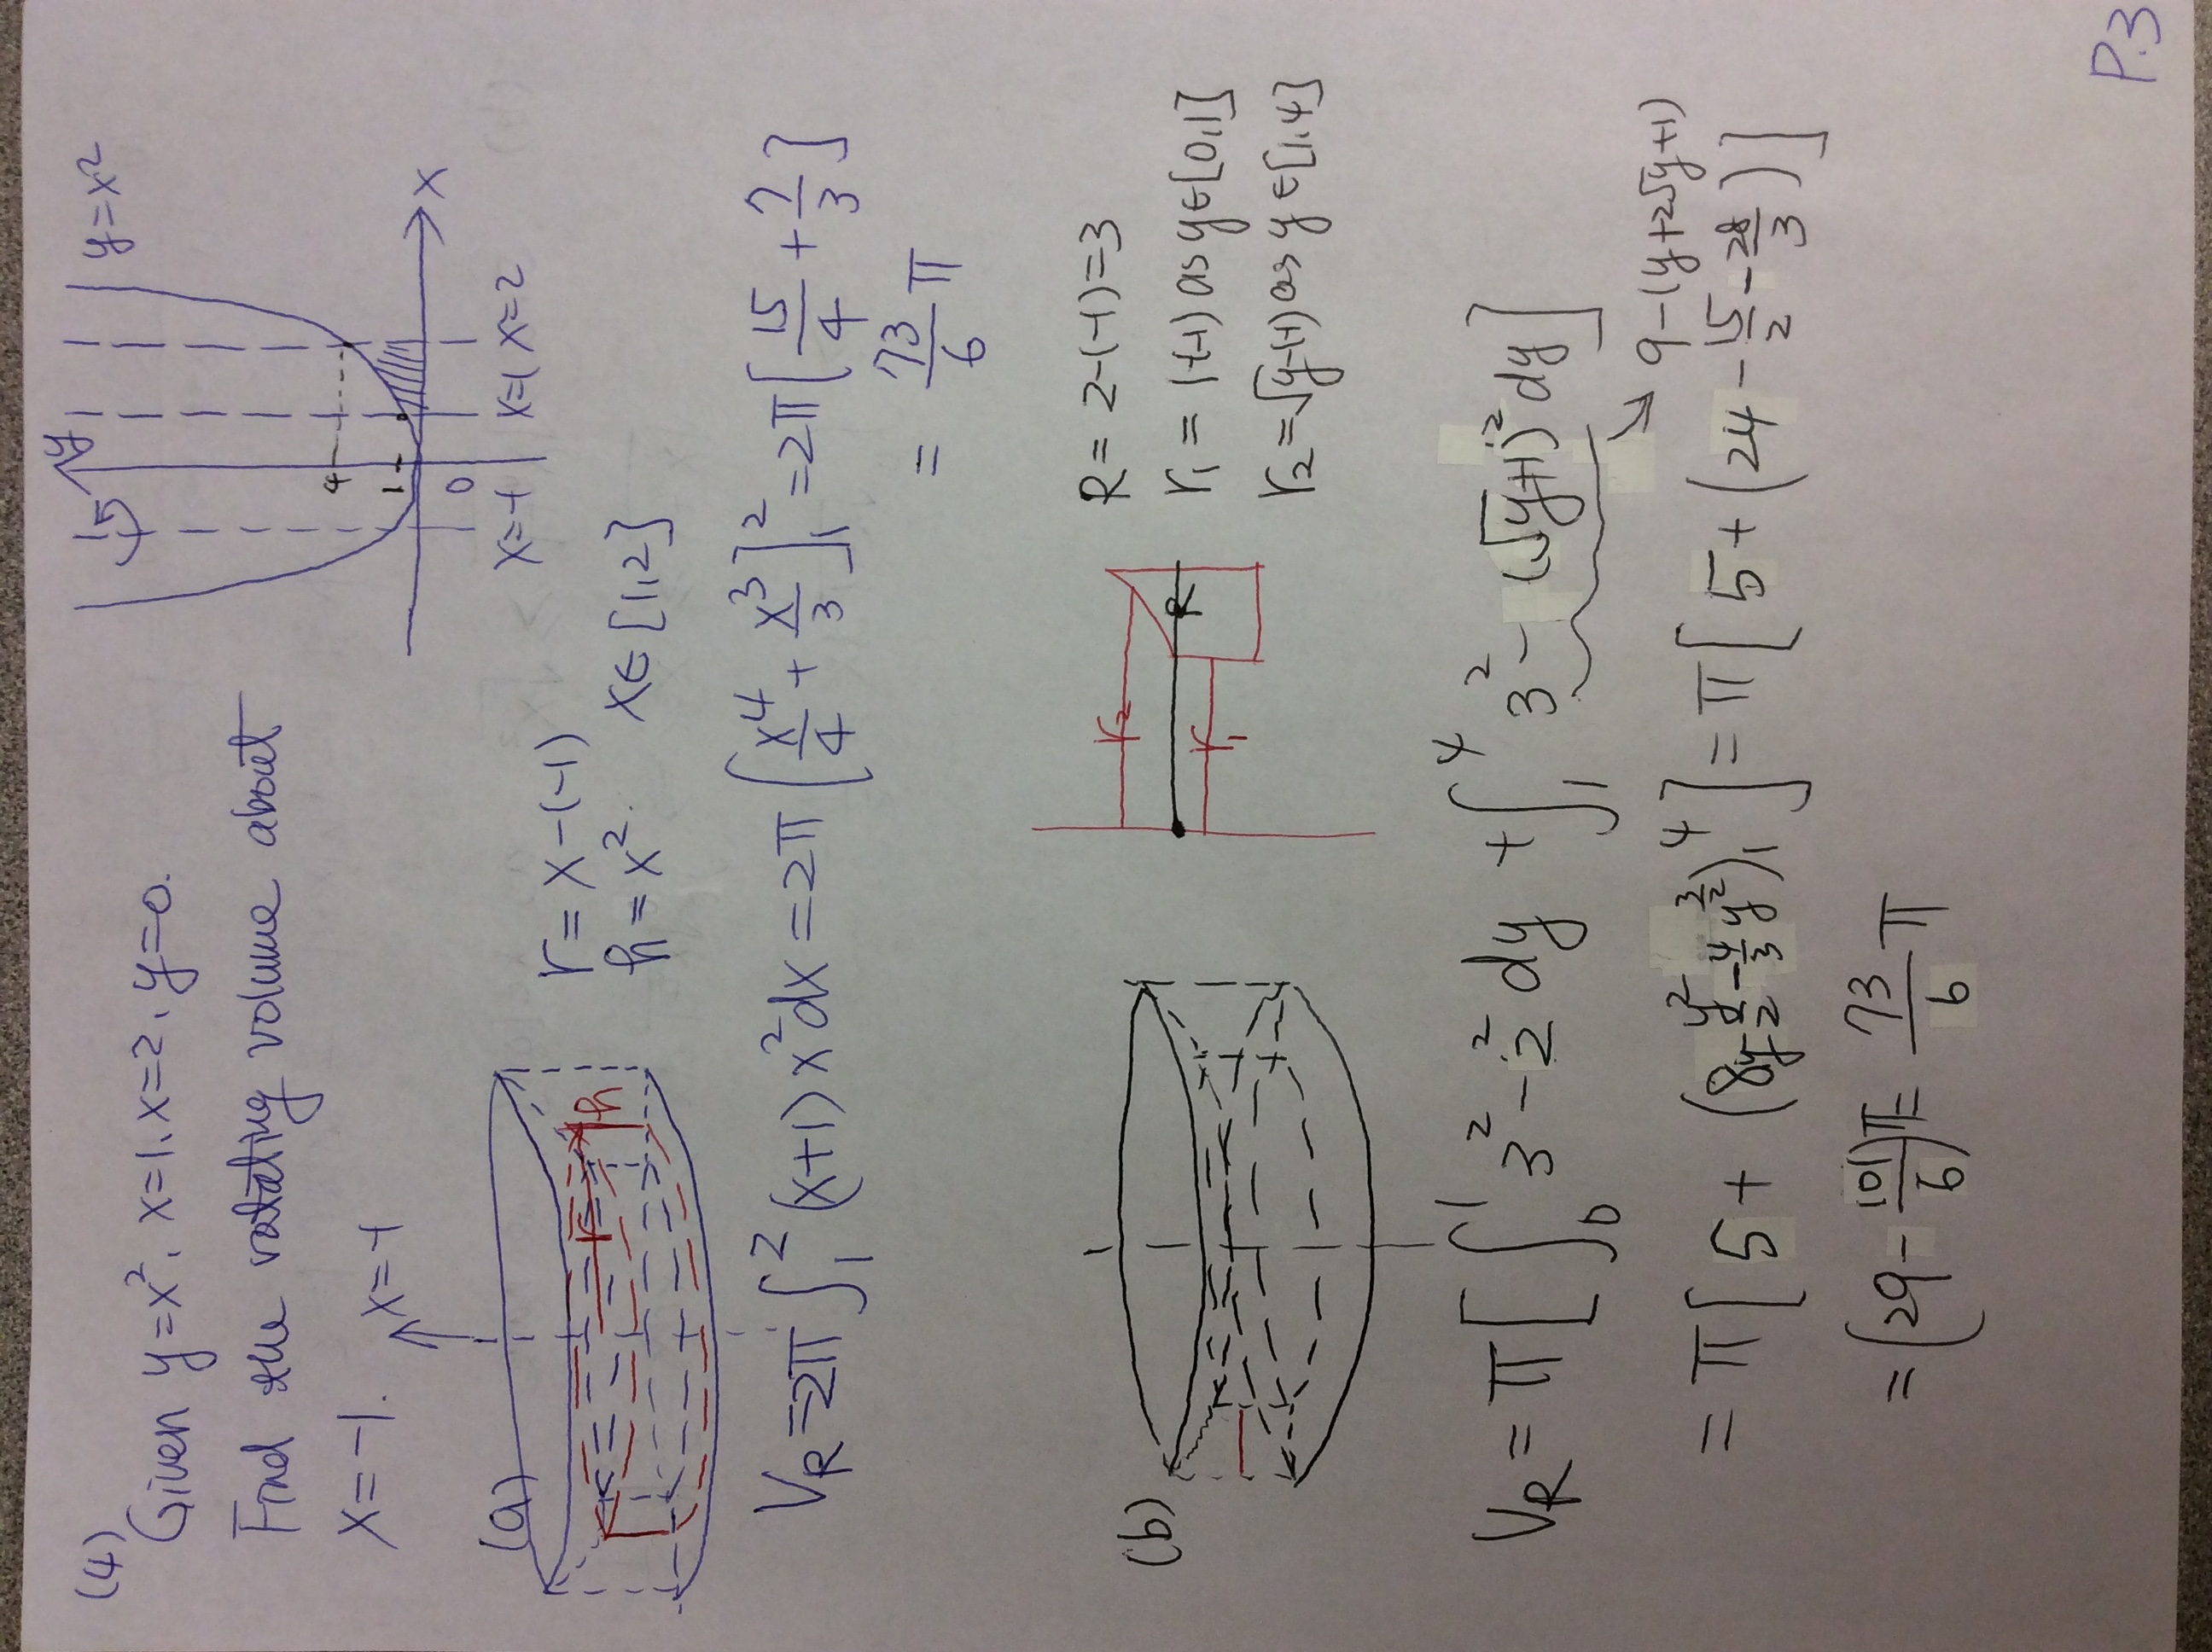 (4)
Given y=x², x=1, x=2, y=0.
Find the rotating volume about
x=-1.
y
y=x²
4
1
0
x
x=-1 x=1 x=2
x=-1
(a)
r
h
r = x-(-1)
h = x². x∈[1,2]
V_R = 2π ∫₁² (x+1)x²dx = 2π [x⁴/4 + x³/3]₁² = 2π[15/4 + 7/3]
= 73/6 π
(b)
r₂
R
r₁
R = 2-(-1)=3
r₁ = 1-(-1) as y∈[0,1]
r₂ = √y-(-1) as y∈[1,4]
V_R = π[∫₀¹ 3²-2² dy + ∫₁⁴ 3²-(√y+1)² dy]
9-(y+2√y+1)
= π[5+(8y-y²/2-4/3 y^(3/2))₁⁴] = π[5+(24-15/2-28/3)]
= (29-101/6)π = 73/6 π
P.3